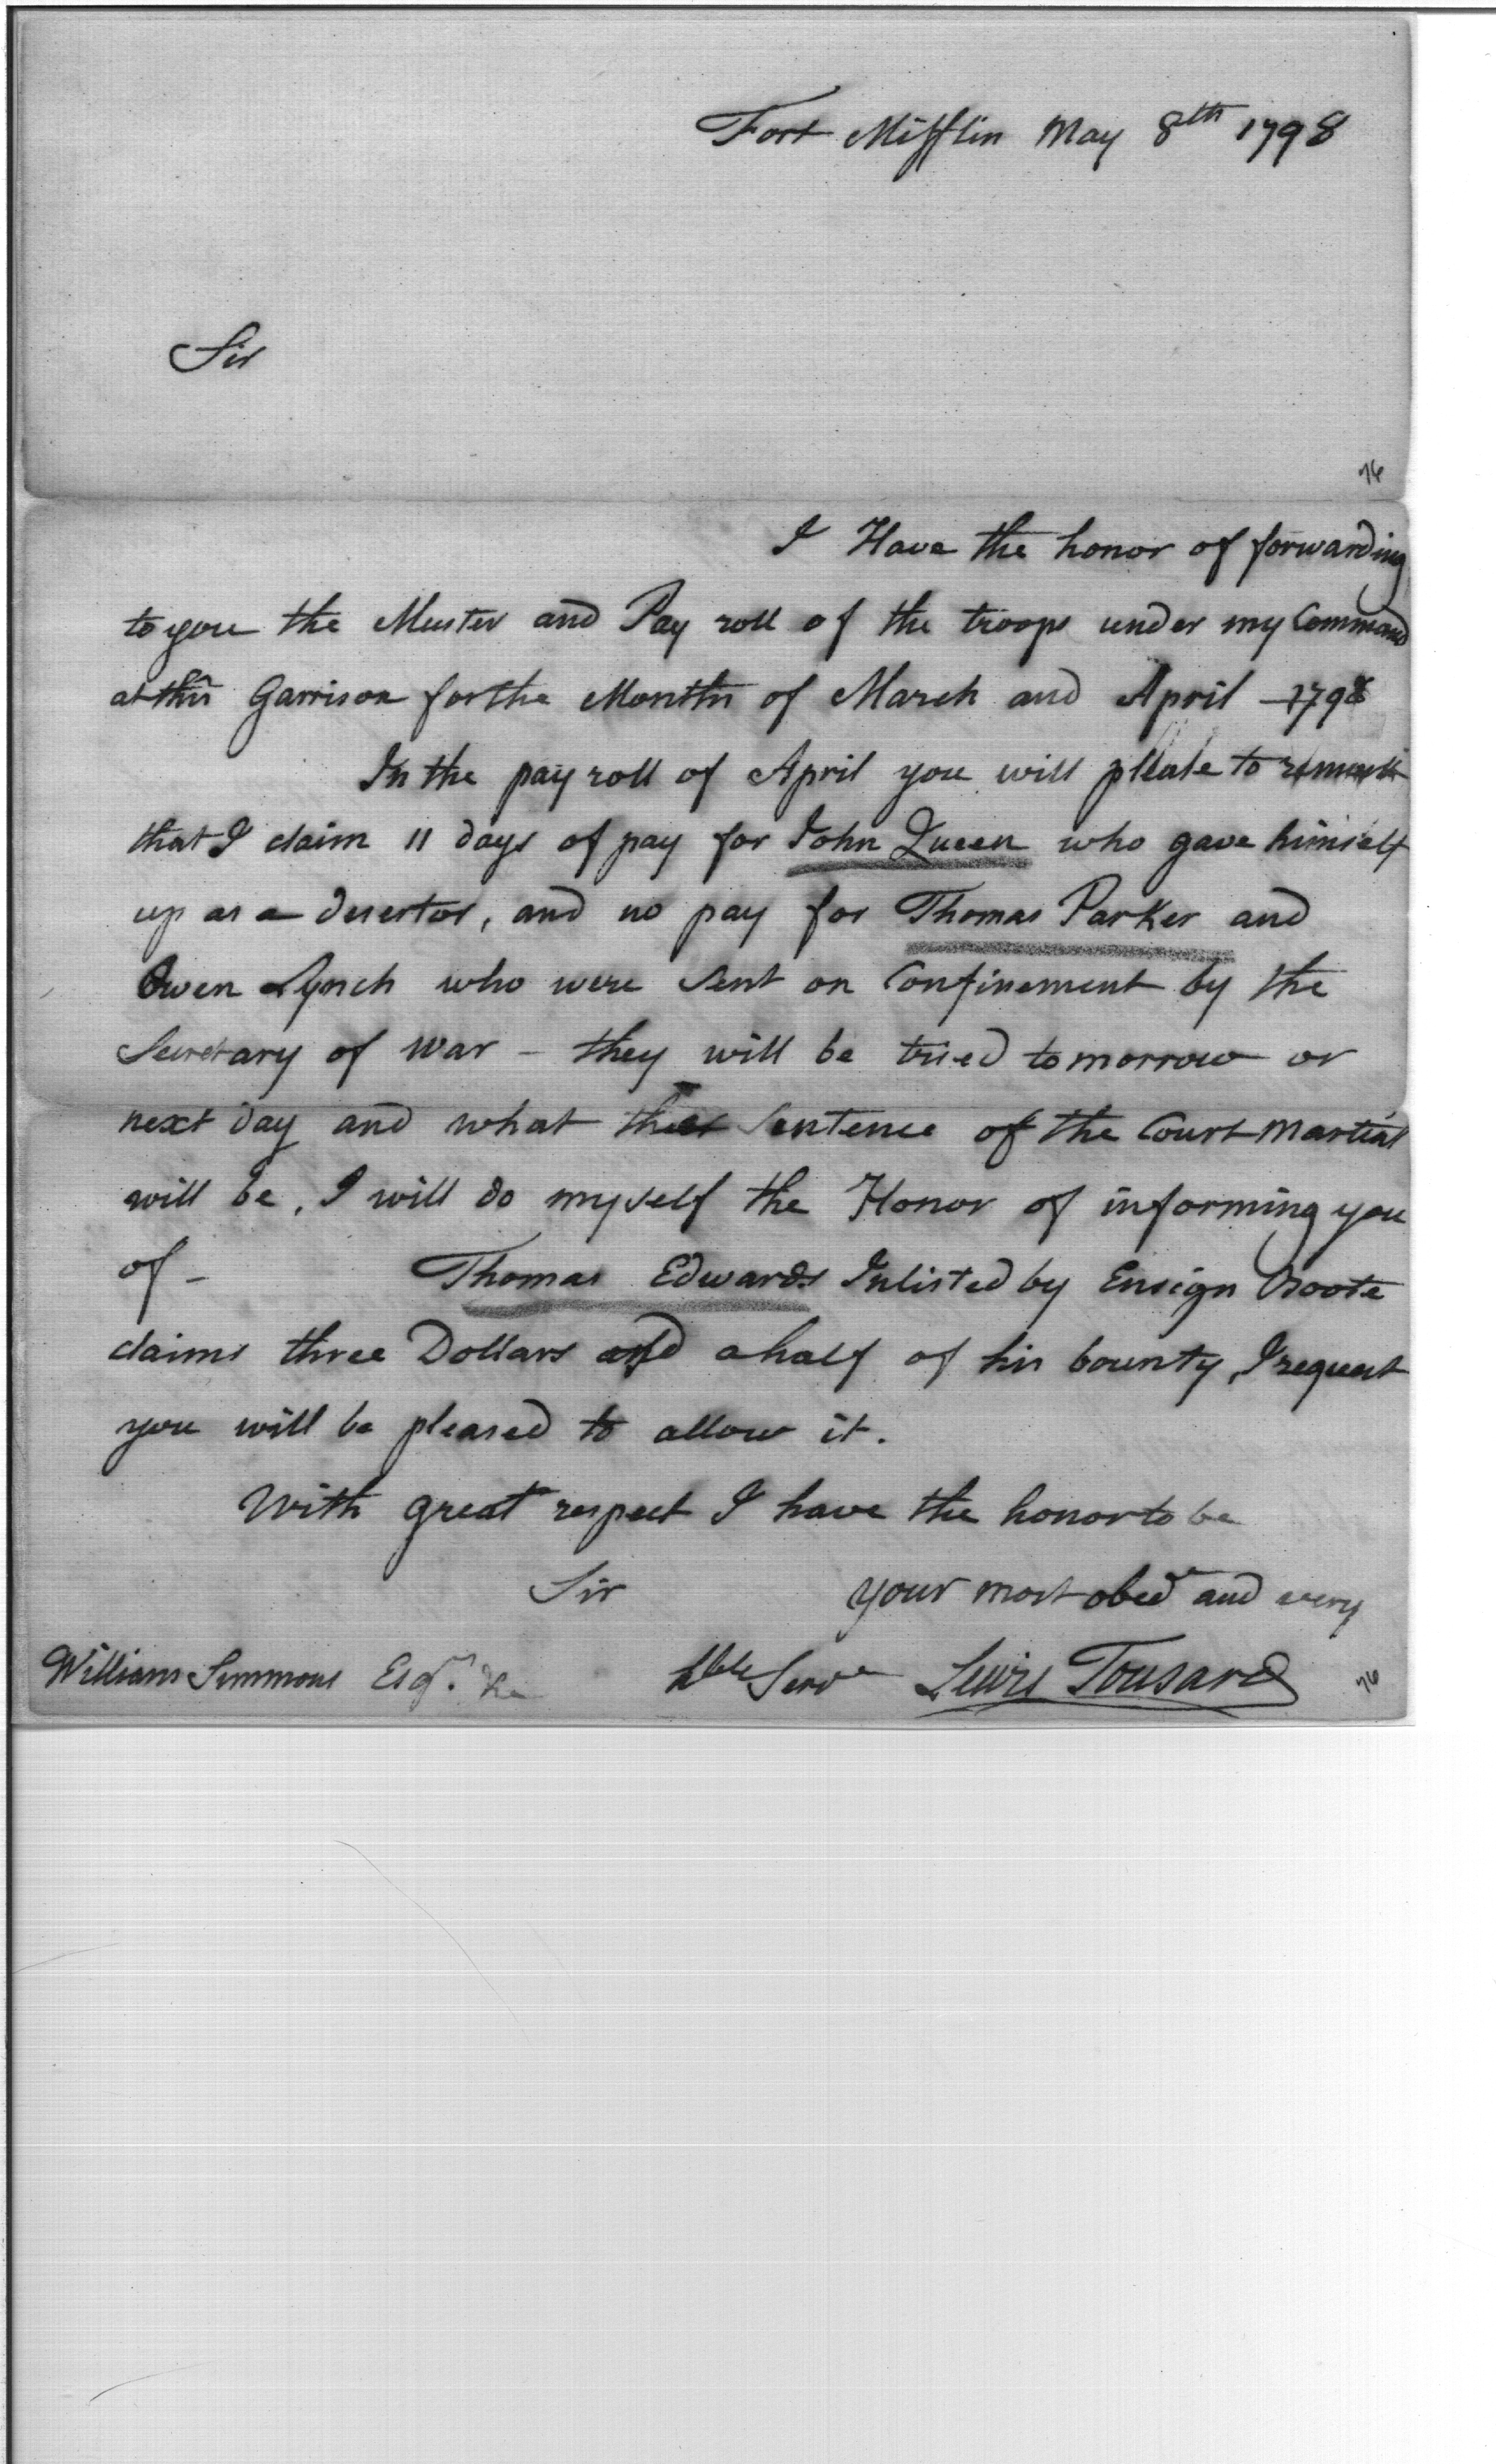 Fort Mifflin May 8th 1798
Sir
76
I Have the honor of forwarding
to you the Muster and Pay roll of the troops under my Command
at this Garrison for the Months of March and April 1798
In the pay roll of April you will please to remark
that I claim 11 days of pay for John Queen who gave himself
up as a desertor, and no pay for Thomas Parker and
Owen Lynch who were sent on Confinement by the
Secretary of War - they will be tried tomorrow or
next day and what the Sentence of the Court Martial
will be, I will do myself the Honor of informing you
of - Thomas Edwards Inlisted by Ensign
claims three Dollars and a half of his bounty, I request
you will be pleased to allow it.
With great respect I have the honor to be
Sir your most obed and very
hble Serv Lewis Tousard
William Simmons Esqr. &c
76